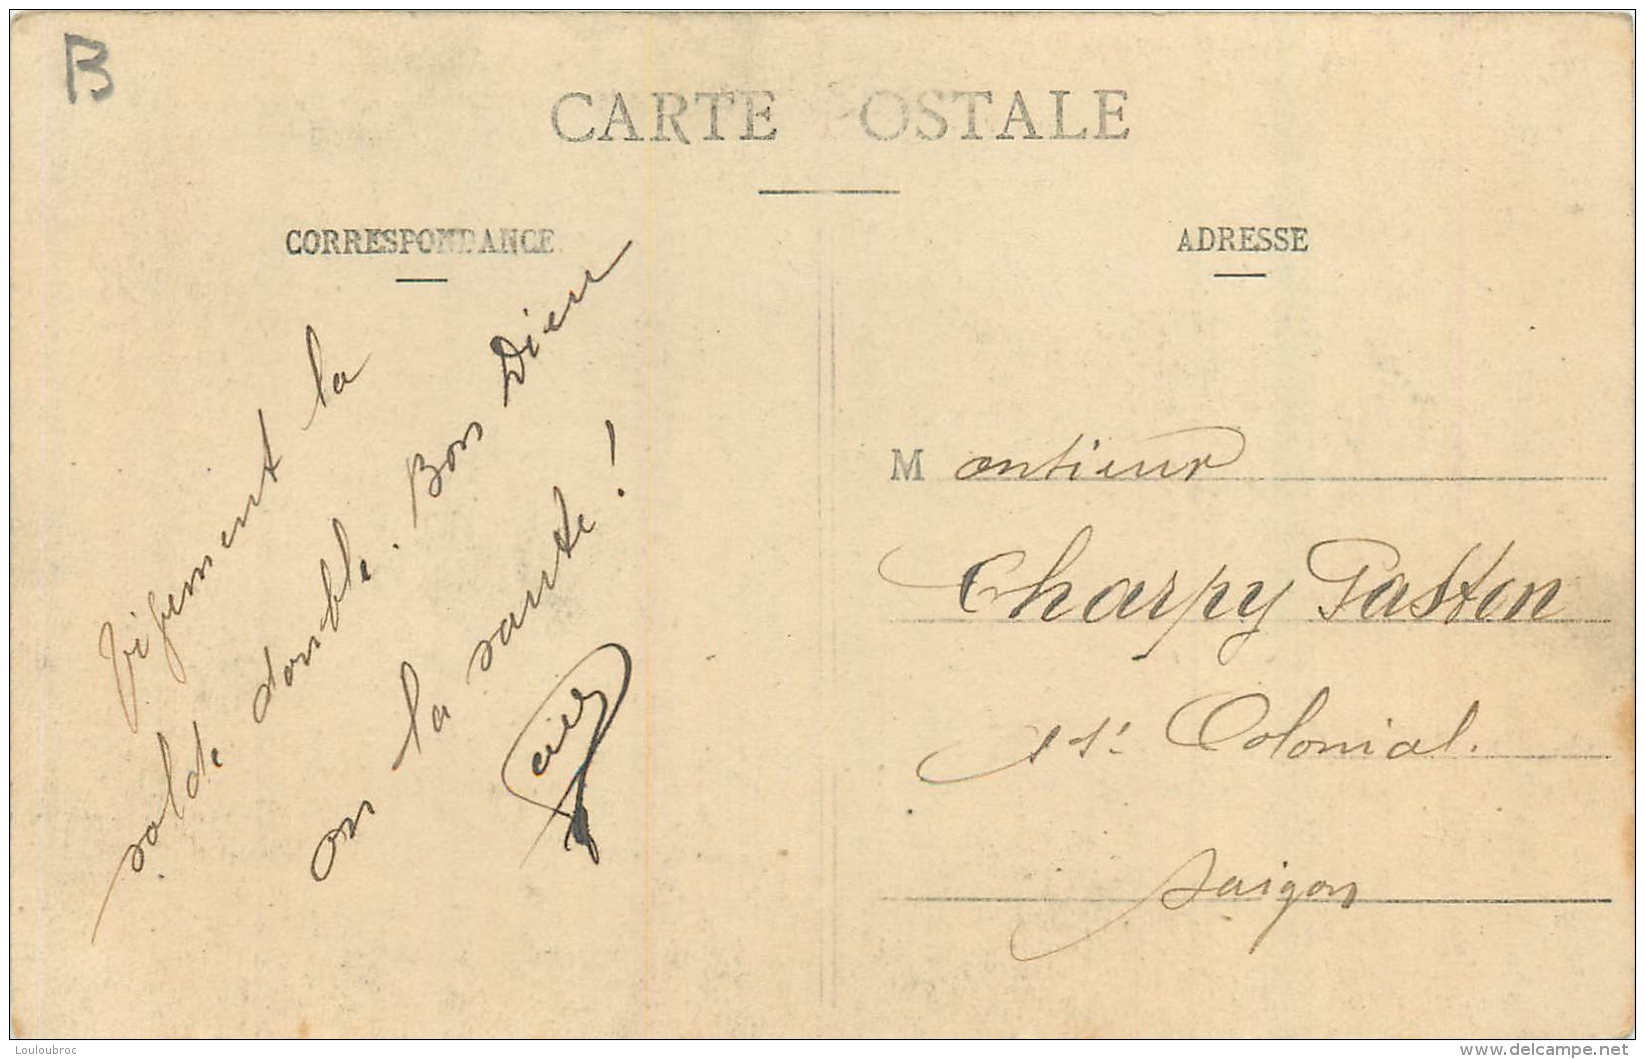 B
CARTE POSTALE
CORRESPONDANCE
vivement la
solde double. Bon Dieu
on la saute!
ADRESSE
Monsieur
Charpy Gaston
11e Colonial.
Saigon
Louloubroc
delcampe.net